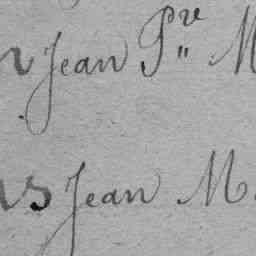 Jean P^re M
Jean M